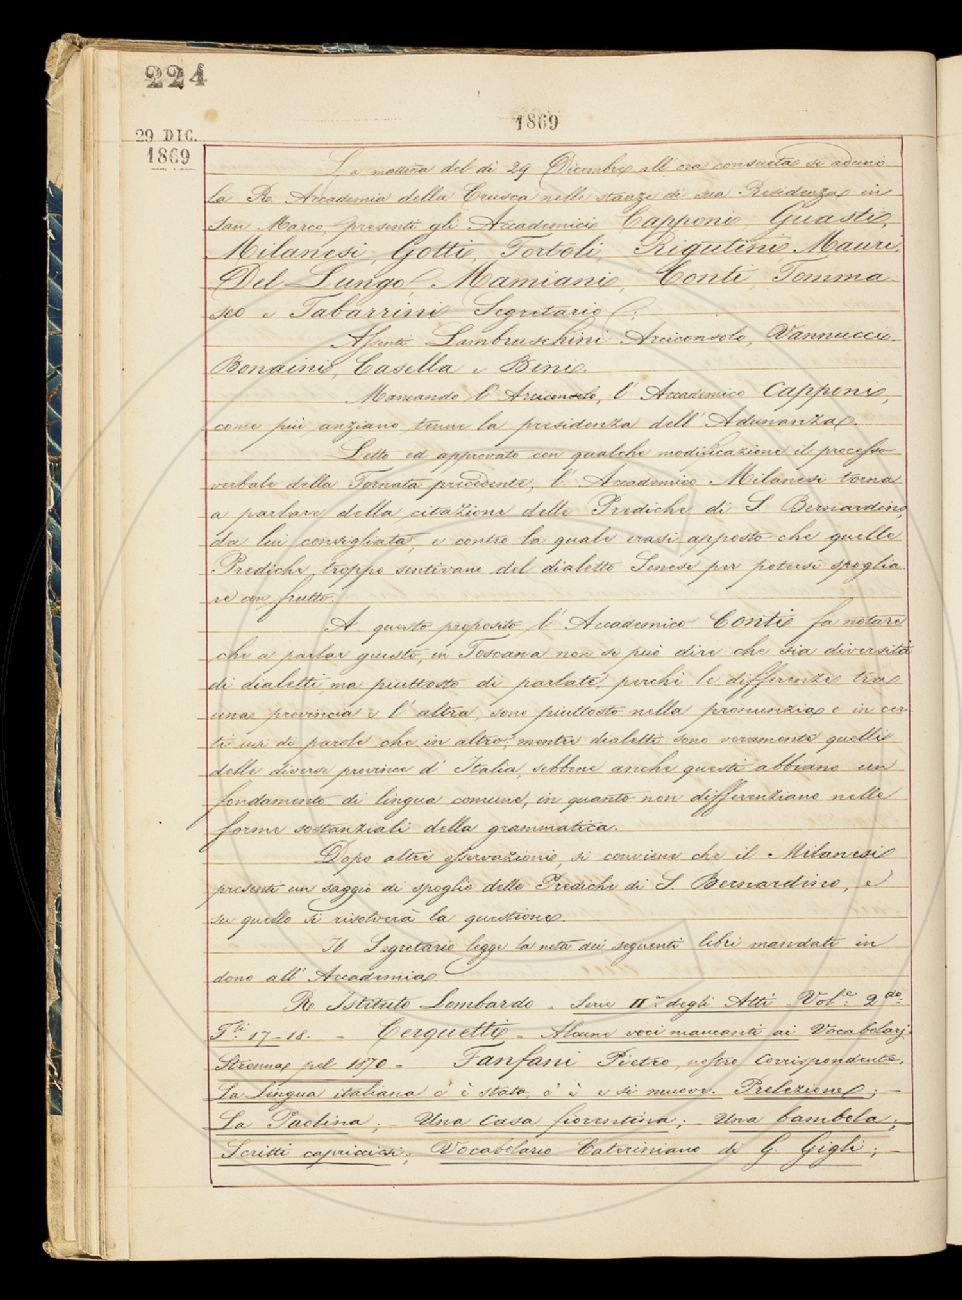 224
1869
29 DIC.
1869
La mattina del dì 29 Dicembre all'ora consueta si adunò
la R. Accademia della Crusca nelle stanze di sua Residenza in
San Marco, presenti gli Accademici Capponi Guasti,
Milanesi Gotti, Tortoli, Rigutini, Mauri,
Del Lungo, Mamiani, Conti, Tomma-
seo e Tabarrini Segretario.
Assenti Lambruschini Arciconsolo, Vannucci
Bonaini, Casella e Bini.
Mancando l'Arciconsolo, l'Accademico Capponi,
come più anziano, tenne la presidenza dell'Adunanza.
Letto ed approvato con qualche modificazione il processo
verbale della Tornata precedente, l'Accademico Milanesi torna
a parlare della citazione delle Prediche di S. Bernardino,
da lui consigliata, e contro la quale erasi apposto che quelle
Prediche troppo sentivano del dialetto Senese per potersi spoglia-
re con frutto.
A questo proposito l'Accademico Conti fa notare
che a parlar giusto, in Toscana non si può dire che sia diversità
di dialetti, ma piuttosto di parlate, perchè le differenze tra
una provincia e l'altra, sono piuttosto nella pronunzia e in cer-
ti usi di parole che in altro; mentre dialetti sono veramente quelli
delle diverse province d'Italia, sebbene anche questi abbiano un
fondamento di lingua comune, in quanto non differenziano nelle
forme sostanziali della grammatica.
Dopo altre osservazioni, si conviene che il Milanesi
presenti un saggio di spoglio delle Prediche di S. Bernardino, e
su quello si risolverà la questione.
Il Segretario legge la nota dei seguenti libri mandati in
dono all'Accademia.
R. Istituto Lombardo - Serie II.ª degli Atti - Vol.e 2.do
F.li 17-18. - Cerquetti - Alcune voci mancanti ai Vocabolarj.
Strenna pel 1870 - Fanfani Pietro, nostro Corrispondente.
La Lingua italiana c'è stata, c'è e si muove. Prelezione; -
La Paolina; Una casa fiorentina; Una bambola;
Scritti capricciosi; Vocabolario Cateriniano di G. Gigli; -